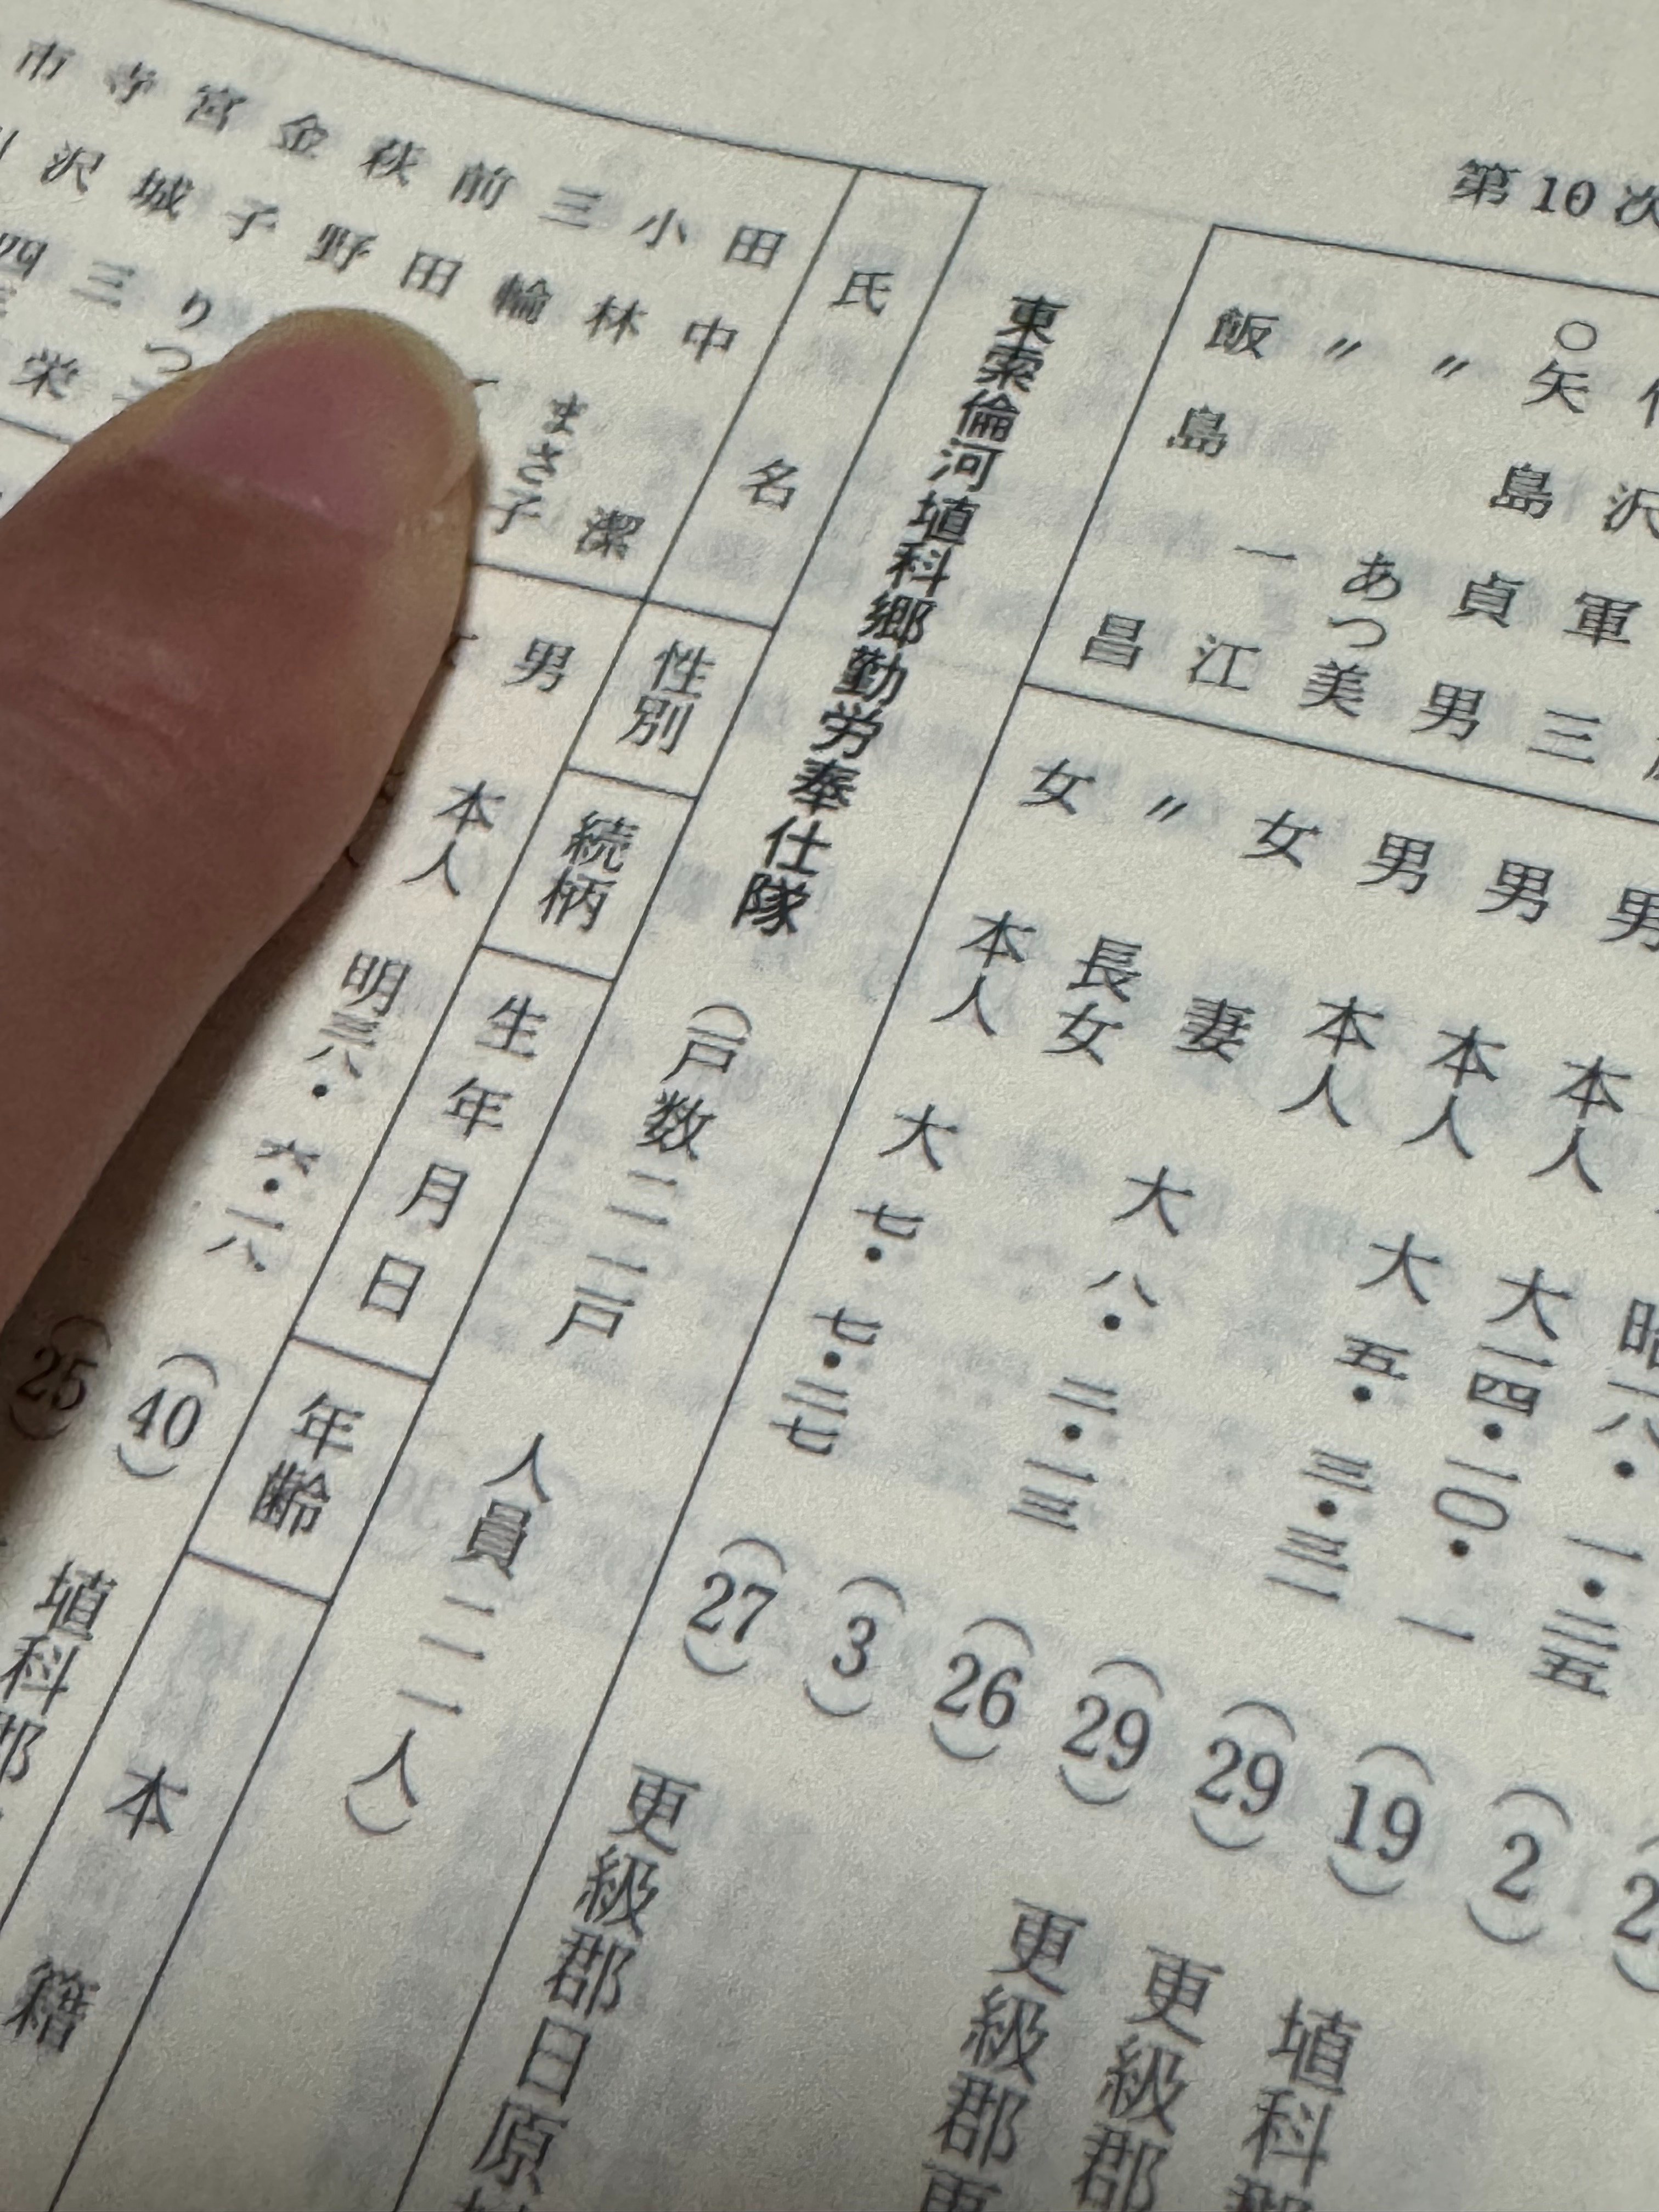 第10次
沢軍三 男 本人 昭一六・一・二五 (2)
男 本人 大一四・一〇・一 (19) 埴科
大五・三・三一 (29) 更級郡
〇矢島貞男 男 本人 (29) 更級郡更
〃 あつ美 女 妻 大八・三・一三 (26)
〃 一江 〃 長女 (3)
飯島昌 女 本人 大七・七・二七 (27) 更級郡日原
東索倫河埴科郷勤労奉仕隊 (戸数二一一戸 人員二一一人)
氏名 性別 続柄 生年月日 年齢 本籍
田中潔 男 本人 明三八・六・一八 (40) 埴科郡
小林まさ子 (25)
三輪
前田
荻野
金子りつ
宮城三栄
寺沢四
市